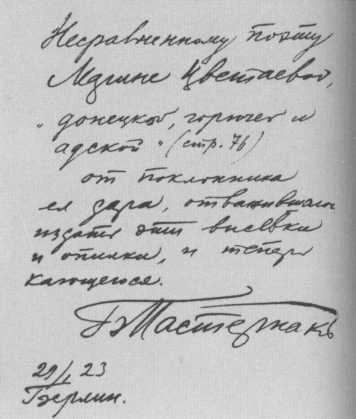 Несравненному поэту
Марине Цветаевой,
„донецкой, горючей и
адской" (стр. 76)
от поклонника
ея дара, отважившагося
издать эти высевки
и опилки, и теперь
кающегося.
Б Пастернакъ
29/I 23
Берлин.